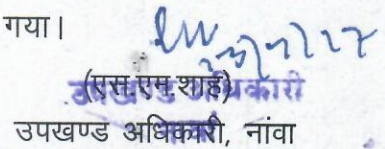 गया।
(एस.एम.शाह)
उपखण्ड अधिकारी
उपखण्ड अधिकारी, नांवा